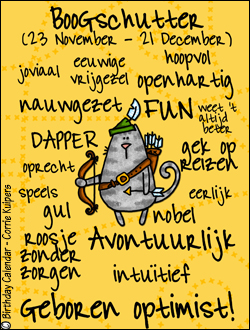 Boogschutter
(23 November - 21 December)
joviaal
eeuwige
vrijgezel
hoopvol
openhartig
nauwgezet
FUN
weet 't
altijd
beter
DAPPER
gek op
reizen
oprecht
speels
eerlijk
gul
nobel
roosje
zonder
zorgen
Avontuurlijk
intuïtief
Geboren optimist!
© Birthday Calendar - Corrie Kuipers